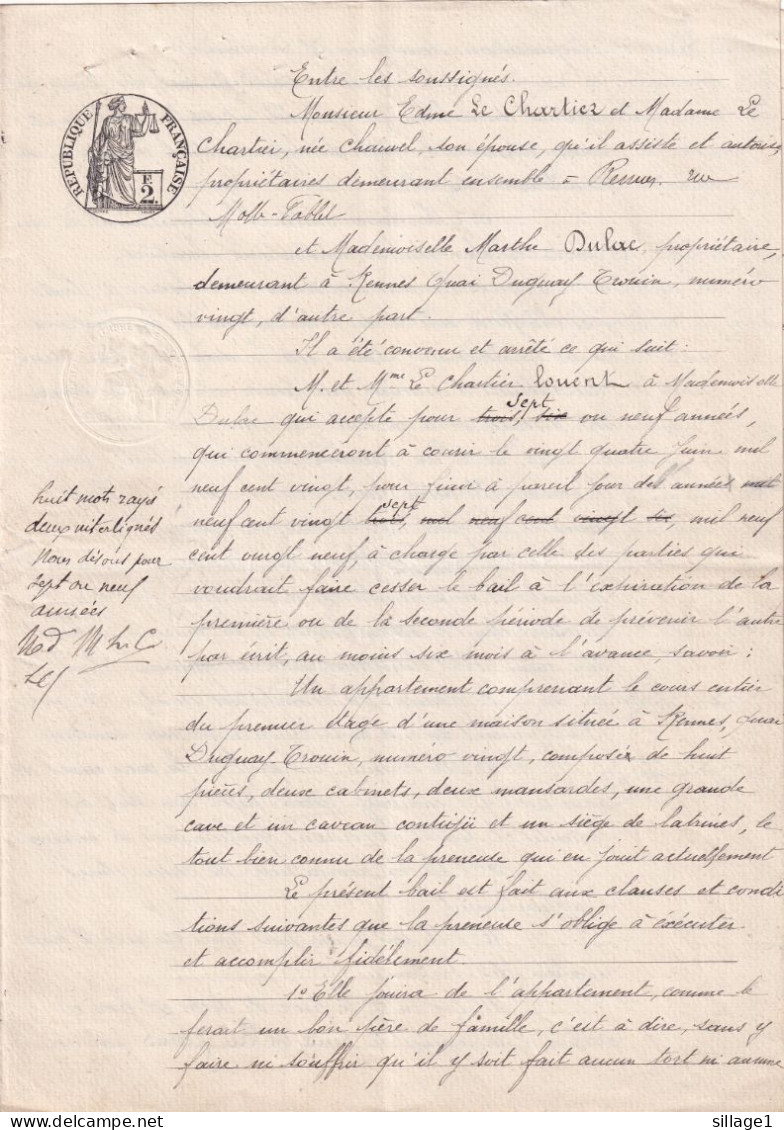 Entre les soussignés.
Monsieur Edme Le Chartier et Madame Le
Chartier, née Chauvel, son épouse, qu'il assiste et autorise,
propriétaires demeurant ensemble à Rennes, rue
et Mademoiselle Marthe Dulac, propriétaire,
demeurant à Rennes Quai Duguay Trouin, numéro
vingt, d'autre part.
Il a été convenu et arrêté ce qui suit :
M. et Mme Le Chartier louent à Mademoiselle
Dulac qui accepte pour trois, sept six ou neuf années,
qui commenceront à courir le vingt quatre Juin mil
neuf cent vingt, pour finir à pareil jour des années mil
neuf cent vingt trois, sept mil neuf cent vingt six, mil neuf
cent vingt neuf, à charge par celle des parties qui
voudrait faire cesser le bail à l'expiration de la
première ou de la seconde période de prévenir l'autre
par écrit, au moins six mois à l'avance, savoir :
Un appartement comprenant le cours entier
du premier étage d'une maison située à Rennes, Quai
Duguay Trouin, numéro vingt, composée de huit
pièces, deux cabinets, deux mansardes, une grande
cave et un caveau contigü et un siège de latrines, le
tout bien connu de la preneuse qui en jouit actuellement
Le présent bail est fait aux clauses et condi
tions suivantes que la preneuse s'oblige à exécuter
et accomplir fidèlement.
1º Elle jouira de l'appartement, comme le
ferait un bon père de famille, c'est à dire, sans y
faire ni souffrir qu'il y soit fait aucun tort ni aucune
huit mots rayés
deux interlignés
Nous disons pour
sept ou neuf
années
RÉPUBLIQUE FRANÇAISE
F.
2.
sillage1